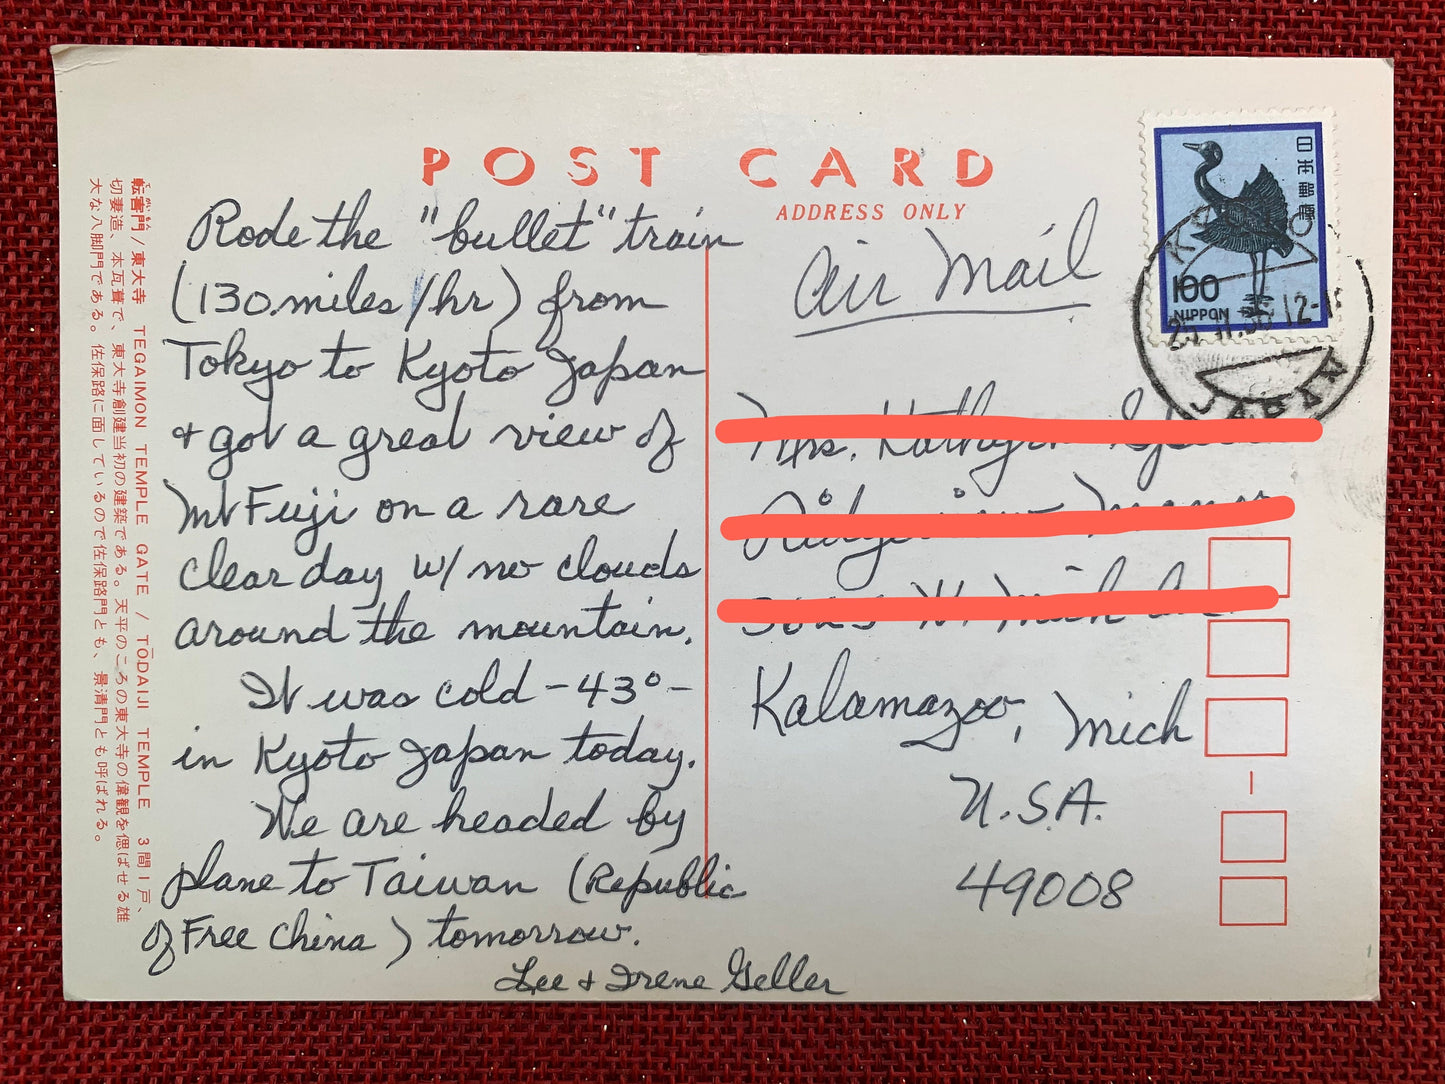 POST CARD
ADDRESS ONLY
Rode the "bullet" train
(130 miles/hr) from
Tokyo to Kyoto Japan
+ got a great view of
Mt Fuji on a rare
clear day w/ no clouds
around the mountain.
It was cold - 43° -
in Kyoto Japan today.
We are headed by
plane to Taiwan (Republic
of Free China) tomorrow.
Lee + Irene Geller
air mail
Kalamazoo, Mich
U.S.A.
49008
日本郵便
100
NIPPON
12-15
JAPAN
転害門/東大寺 TEGAIMON TEMPLE GATE / TŌDAIJI TEMPLE 3間1戸、
切妻造、本瓦葺で、東大寺創建当初の建築である。天平のころの東大寺の偉観を偲ばせる雄
大な八脚門である。佐保路に面しているので佐保路門とも、景清門とも呼ばれる。